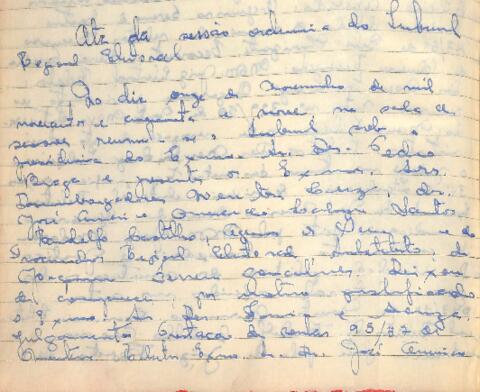 Ata da sessão ordinaria do Tribunal
Regional Eleitoral
Ao dia onze de novembro de mil
novecentos e cinquenta e nove, na sala de
sessoes, reuniu-se o Tribunal sob a
presidencia do Exmo. Sr. Dr. Pedro
Braga e presentes os Exmos. Srs.
Desembargadores Cruz, dr.
José Americo Santos
Randolfo Castilho, e do
Procurador Regional Eleitoral, substituto, dr.
Gonçalves. Deixou
de comparecer, por motivo justificado
o Exmo. Sr. Dr. e Souza.
Julgamento Prestação de contas 95/57 de
Exmo. Sr. Dr. José Americo